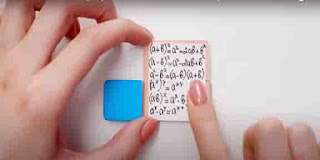 (a+b)²=a²+2ab+b²
(a-b)²=a²-2ab+b²
a²-b²=(a-b)(a+b)
(a^x)^y=a^xy
(ab)^x=a^x·b
a^x·a^y=a^x+